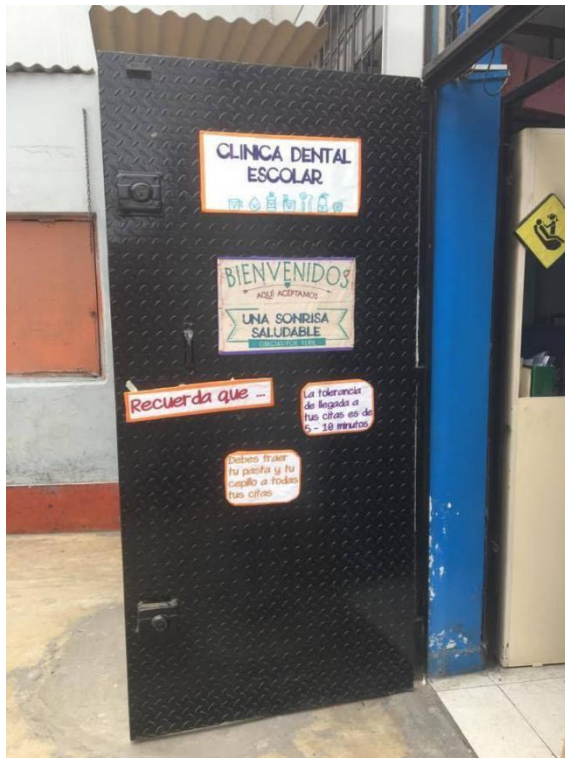 CLINICA DENTAL
ESCOLAR
BIENVENIDOS
AQUÍ ACEPTAMOS
UNA SONRISA
SALUDABLE
GRACIAS POR VENIR
Recuerda que ...
La tolerancia
de llegada a
tus citas es de
5 - 10 minutos
Debes traer
tu pasta y tu
cepillo a todas
tus citas